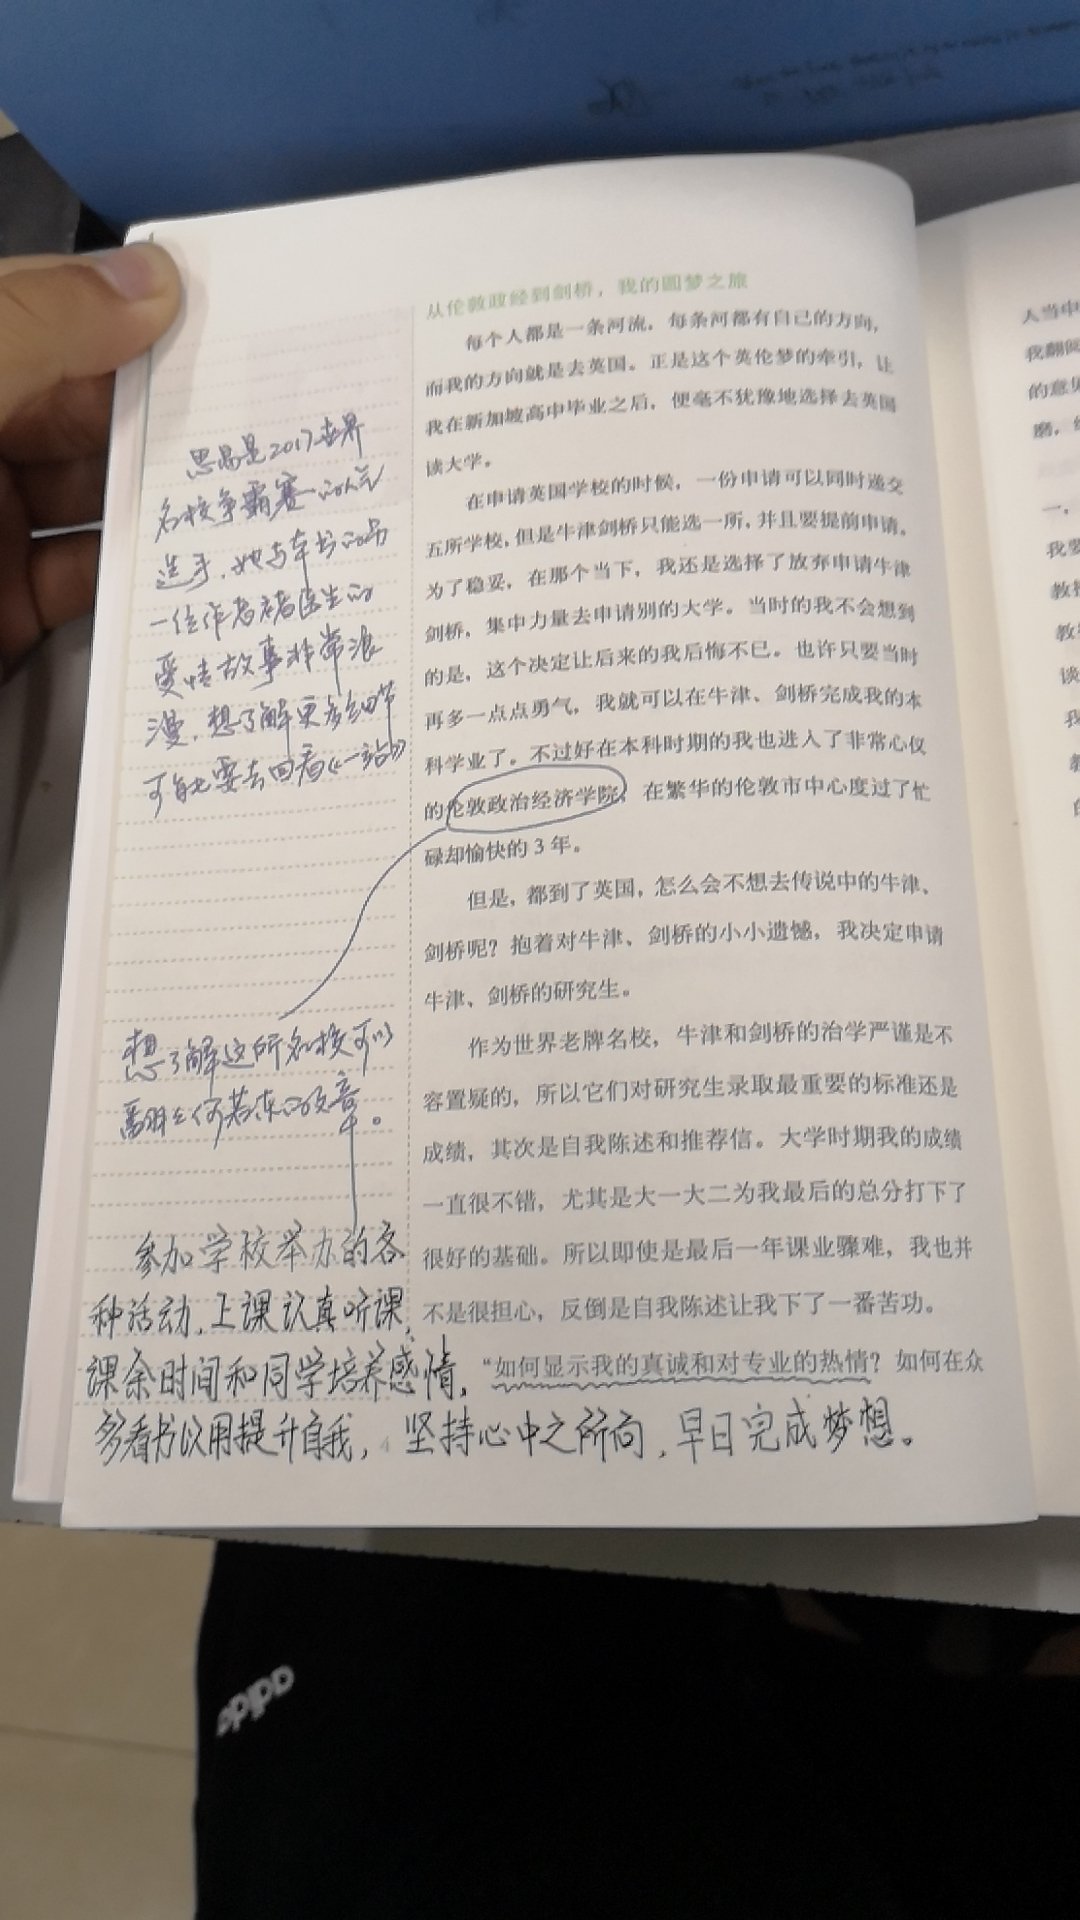 从伦敦政经到剑桥，我的圆梦之旅
每个人都是一条河流，每条河都有自己的方向，
而我的方向就是去英国。正是这个英伦梦的牵引，让
我在新加坡高中毕业之后，便毫不犹豫地选择去英国
读大学。
在申请英国学校的时候，一份申请可以同时递交
五所学校，但是牛津剑桥只能选一所，并且要提前申请。
为了稳妥，在那个当下，我还是选择了放弃申请牛津
剑桥，集中力量去申请别的大学。当时的我不会想到
的是，这个决定让后来的我后悔不已。也许只要当时
再多一点点勇气，我就可以在牛津、剑桥完成我的本
科学业了。不过好在本科时期的我也进入了非常心仪
的伦敦政治经济学院，在繁华的伦敦市中心度过了忙
碌却愉快的3年。
但是，都到了英国，怎么会不想去传说中的牛津、
剑桥呢？抱着对牛津、剑桥的小小遗憾，我决定申请
牛津、剑桥的研究生。
作为世界老牌名校，牛津和剑桥的治学严谨是不
容置疑的，所以它们对研究生录取最重要的标准还是
成绩，其次是自我陈述和推荐信。大学时期我的成绩
一直很不错，尤其是大一大二为我最后的总分打下了
很好的基础。所以即使是最后一年课业骤难，我也并
不是很担心，反倒是自我陈述让我下了一番苦功。
“如何显示我的真诚和对专业的热情？如何在众
思易是2017世界
名校争霸赛的人气
选手，她与本书的另
一位作者褚医生的
爱情故事非常浪
漫，想了解更多细节
可能要去回看《一站》
想了解这所名校可以
翻到何若冻的文章。
参加学校举办的各
种活动，上课认真听课，
课余时间和同学培养感情，
多看书以用提升自我，坚持心中之所向，早日完成梦想。
4
人当中
我翻阅
的意见
磨，
一，
我要
教授
教
谈
我
教
的
oppo